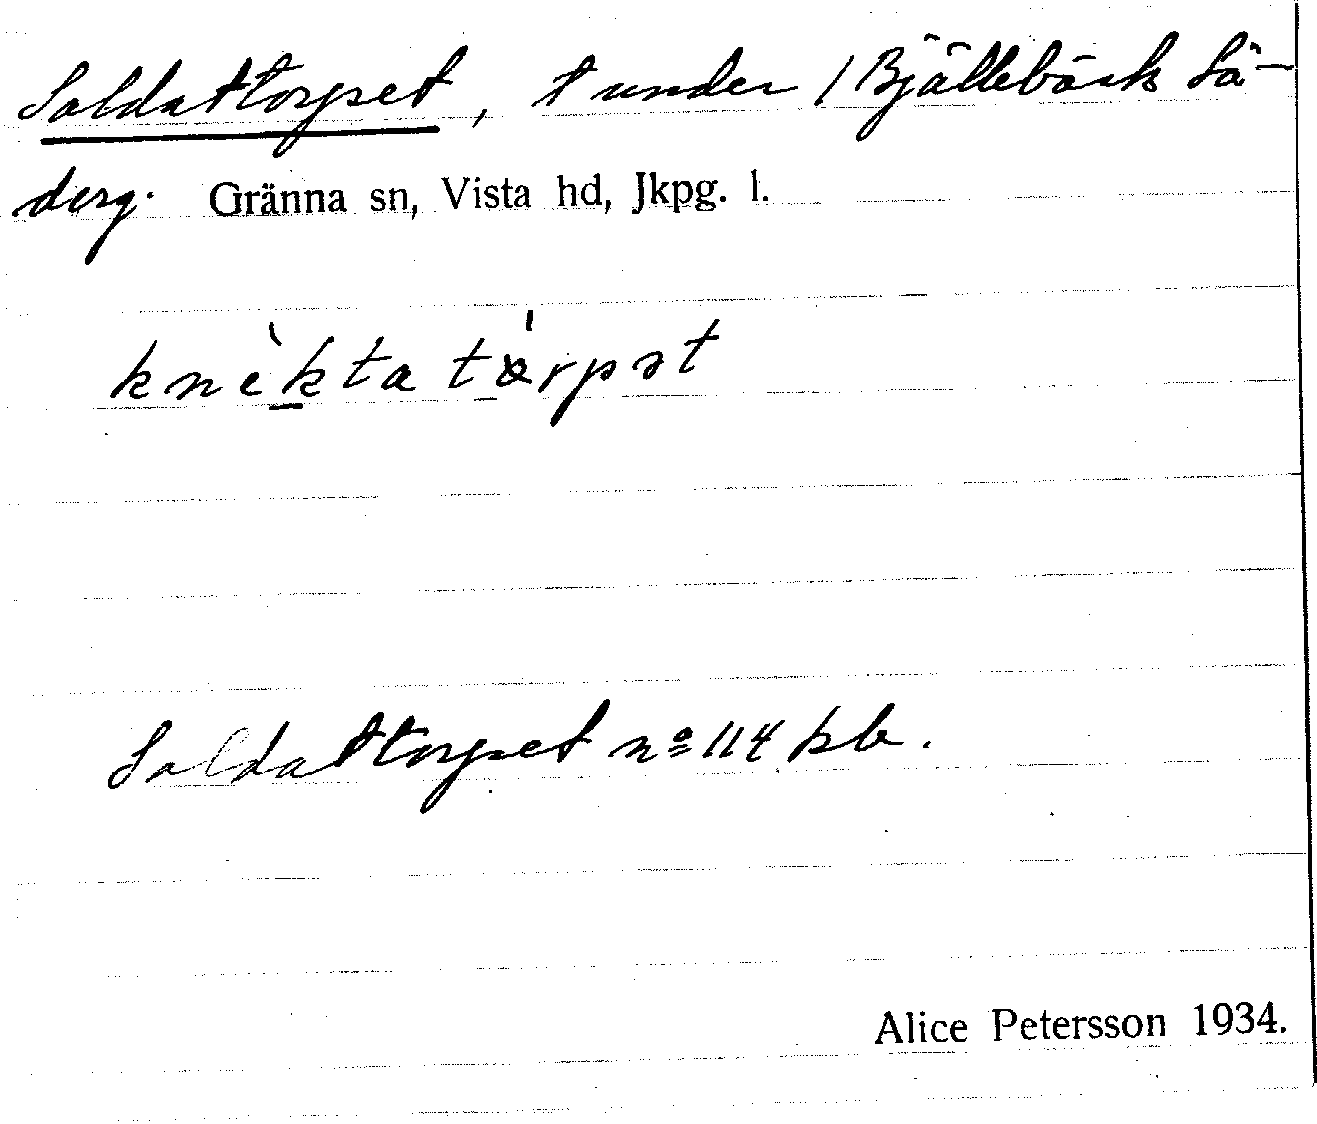 Soldattorpet, t under 1 Bjällebäck Sö-
derg. Gränna sn, Vista hd, Jkpg. l.
knèkta tórpət
Soldattorpet nº 114 kb.
Alice Petersson 1934.